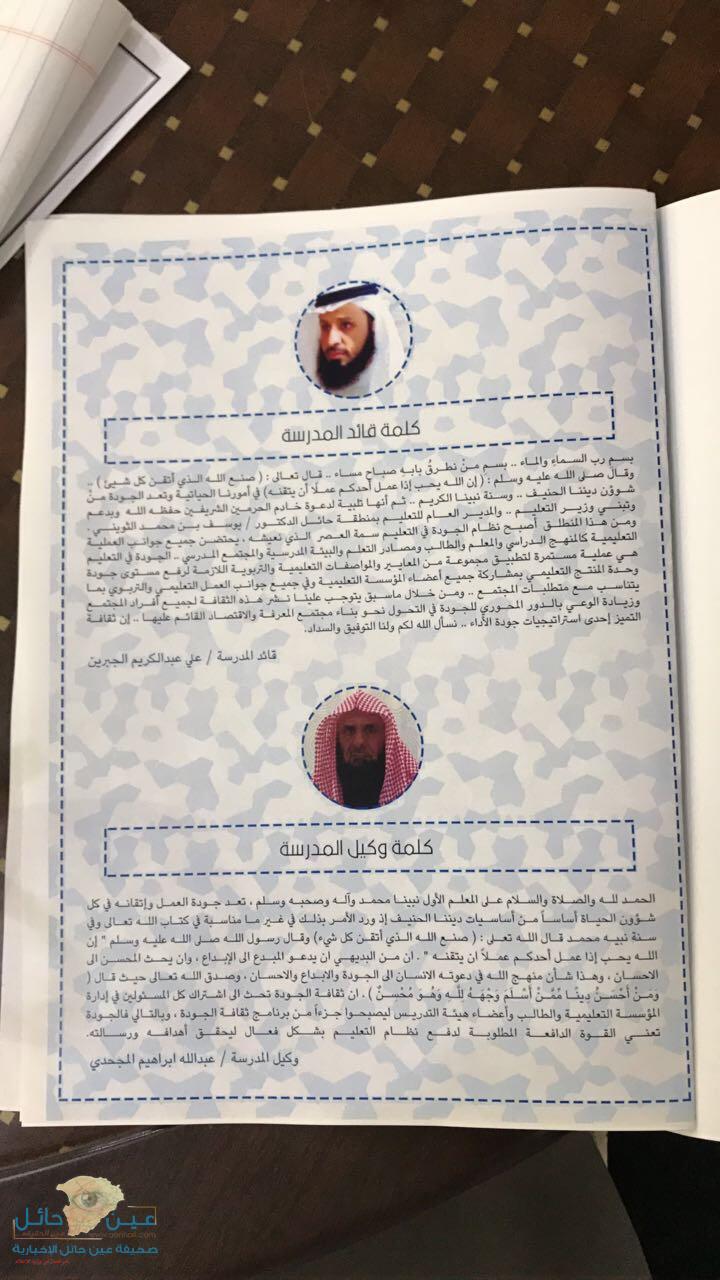 كلمة قائد المدرسة
بسم رب السماء والماء .. بسم منْ نطرقُ بابه صباح مساء .. قال تعالى : ( صنع الله الذي أتقن كل شيئ ) ..
وقال صلى الله عليه وسلم : ( إن الله يحب إذا عمل أحدكم عملًا أن يتقنه) في أمورنا الحياتية وتعد الجودة منْ
شوؤن ديننا الحنيف .. وسنة نبينا الكريم .. ثم أنها تلبية لدعوة خادم الحرمين الشريفين حفظه الله وبدعم
وتبني وزير التعليم .. والمدير العام للتعليم بمنطقة حائل الدكتور / يوسف بن محمد الثويني .
ومن هذا المنطلق أصبح نظام الجودة في التعليم سمة العصر الذي نعيشه ، يحتضن جميع جوانب العملية
التعليمية كالمنهج الدراسي والمعلم والطالب ومصادر التعلم والبيئة المدرسية والمجتمع المدرسي .. الجودة في التعليم
هي عملية مستمرة لتطبيق مجموعة من المعايير والمواصفات التعليمية والتربوية اللازمة لرفع مستوى جودة
وحدة المنتج التعليمي بمشاركة جميع أعضاء المؤسسة التعليمية وفي جميع جوانب العمل التعليمي والتربوي بما
يتناسب مع متطلبات المجتمع .. ومن خلال ماسبق يتوجب علينا نشر هذه الثقافة لجميع أفراد المجتمع
وزيادة الوعي بالدور المحوري للجودة في التحول نحو بناء مجتمع المعرفة والاقتصاد القائم عليها .. إن ثقافة
التميز إحدى استراتيجيات جودة الأداء .. نسأل الله لكم ولنا التوفيق والسداد.
قائد المدرسة / علي عبدالكريم الجبرين
كلمة وكيل المدرسة
الحمد لله والصلاة والسلام على المعلم الأول نبينا محمد وآله وصحبه وسلم ، تعد جودة العمل وإتقانه في كل
شؤون الحياة أساساً من أساسيات ديننا الحنيف إذ ورد الأمر بذلك في غير ما مناسبة في كتاب الله تعالى وفي
سنة نبيه محمد قال الله تعلى : ( صنع الله الذي أتقن كل شيء) وقال رسول الله صلى الله عليه وسلم " إن
الله يحب إذا عمل أحدكم عملاً ان يتقنه " . ان من البديهي ان يدعو المبدع الى الإبداع ، وان يحث المحسن الى
الاحسان ، وهذا شأن منهج الله في دعوته الانسان الى الجودة والابداع والاحسان ، وصدق الله تعالى حيث قال (
وَمَنْ أَحْسَنُ دِينًا مِّمَّنْ أَسْلَمَ وَجْهَهُ لِلَّهِ وَهُوَ مُحْسِنٌ ) . ان ثقافة الجودة تحث الى اشتراك كل المسئولين في إدارة
المؤسسة التعليمية والطالب وأعضاء هيئة التدريس ليصبحوا جزءاً من برنامج ثقافة الجودة ، وبالتالي فالجودة
تعني القوة الدافعة المطلوبة لدفع نظام التعليم بشكل فعال ليحقق أهدافه ورسالته.
وكيل المدرسة / عبدالله ابراهيم المجحدي
عين حائل
صحيفة عين حائل الإخبارية